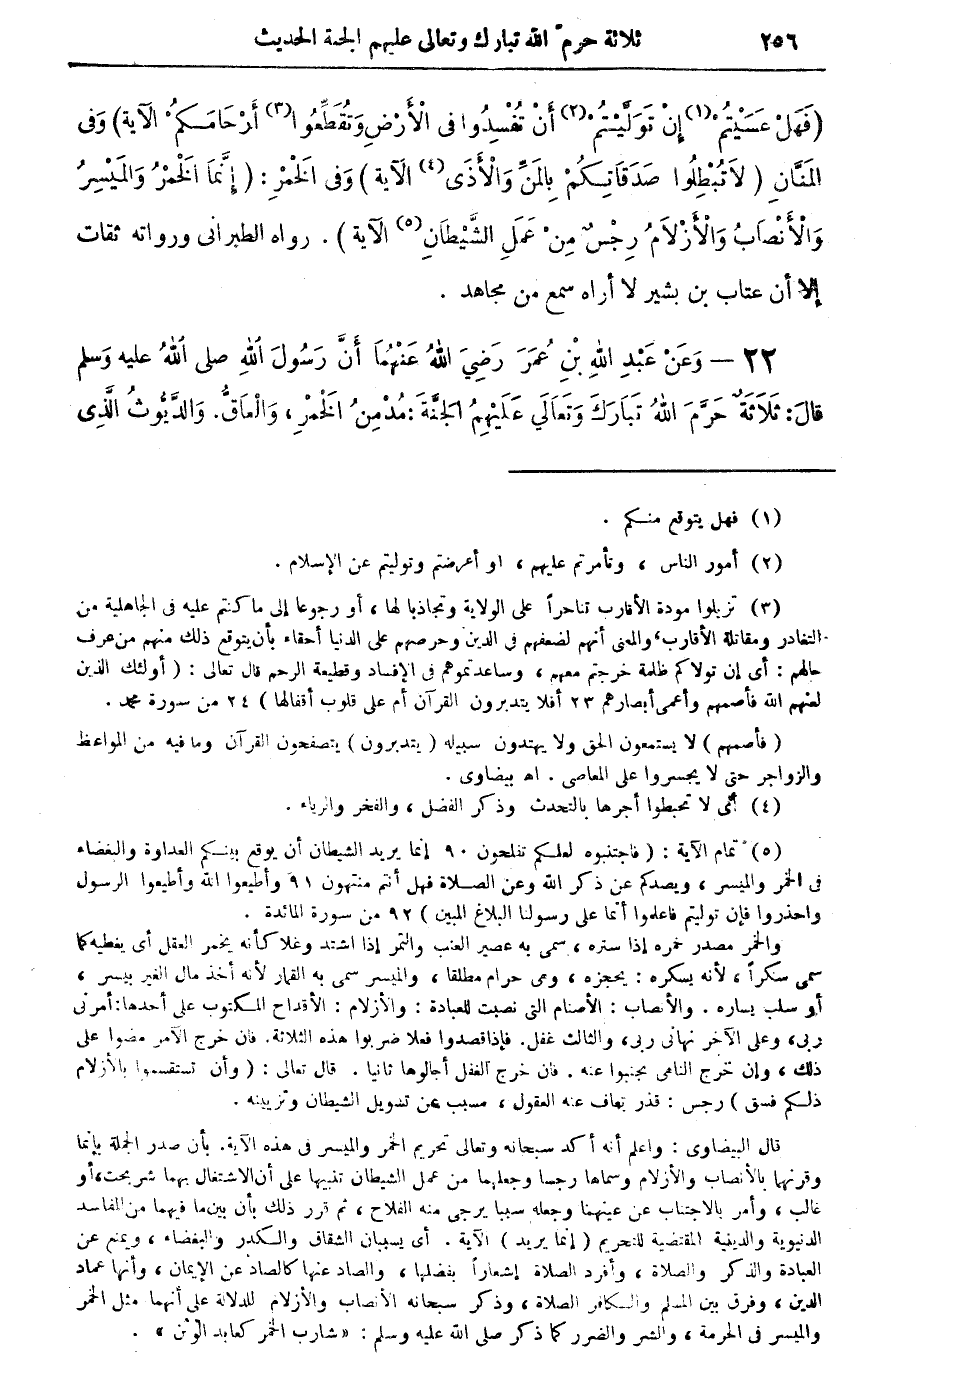 ٢٥٦ ثلاثة حرم الله تبارك وتعالى عليهم الجنة الحديث
(فَهَلْ عَسَيْتُمْ(١) إِنْ تَوَلَّيْتُمْ(٢) أَنْ تُفْسِدُوا فى الْأَرْضِ وَتُقَطِّعُوا(٣) أَرْحَامَكُمْ الآية) وَفى
المَنَّانِ (لاَ تُبْطِلُوا صَدَقَاتِكُمْ بِالمَنِّ وَالْأَذَى(٤) الآية) وَفى الخَمْرِ: (إِنَّمَا الخَمْرُ وَالمَيْسِرُ
وَالْأَنْصَابُ وَالْأَزْلَامُ رِجْسٌ مِنْ عَمَلِ الشَّيْطَانِ(٥) الآية). رواه الطبرانى ورواته ثقات
إلا أن عتاب بن بشير لا أراه سمع من مجاهد .
٢٢ — وَعَنْ عَبْدِ اللهِ بْنِ عُمَرَ رَضِيَ اللهُ عَنْهُمَا أَنَّ رَسُولَ اللهِ صلى اللهُ عليه وَسلم
قالَ: ثَلَاثَةٌ حَرَّمَ اللهُ تَبَارَكَ وَتَعَالَي عَلَيْهِمُ الجَنَّةَ: مُدْمِنُ الخَمْرِ، وَالْعَاقُّ. وَالدَّيُّوثُ الَّذِى
(١) فهل يتوقع منكم .
(٢) أمور الناس ، وتأمرتم عليهم ، او أعرضتم وتوليتم عن الإسلام .
(٣) تزيلوا مودة الأقارب تناحراً على الولاية وتجاذبا لها ، أو رجوعا إلى ما كنتم عليه فى الجاهلية من
التغادر ومقاتلة الأقارب، والمعنى أنهم لضعفهم فى الدين وحرصهم على الدنيا أحقاء بأن يتوقع ذلك منهم من عرف
حالهم : أى إن تولاكم ظلمة خرجتم معهم ، وساعدتموهم فى الإفساد وقطيعة الرحم قال تعالى : ( أولئك الذين
لعنهم الله فأصمهم وأعمى أبصارهم ٢٣ أفلا يتدبرون القرآن أم على قلوب أقفالها ) ٢٤ من سورة محمد .
( فأصمهم ) لا يستمعون الحق ولا يهتدون سبيله ( يتدبرون ) يتصفحون القرآن وما فيه من المواعظ
والزواجر حتى لا يجسروا على المعاصى . اهـ بيضاوى .
(٤) أى لا تحبطوا أجرها بالتحدث وذكر الفضل ، والفخر والرياء .
(٥) تمام الآية : ( فاجتنبوه لعلكم تفلحون ٩٠ إنما يريد الشيطان أن يوقع بينكم العداوة والبغضاء
فى الخمر والميسر ، ويصدكم عن ذكر الله وعن الصلاة فهل أنتم منتهون ٩١ وأطيعوا الله وأطيعوا الرسول
واحذروا فإن توليتم فاعلموا أنما على رسولنا البلاغ المبين ) ٩٢ من سورة المائدة .
والخمر مصدر خمره إذا ستره ، سمى به عصير العنب والتمر إذا اشتد وغلا كأنه يخمر العقل أى يغطيه كما
سمى سكراً ، لأنه يسكره : يحجزه ، وهى حرام مطلقا ، والميسر سمى به القمار لأنه أخذ مال الغير بيسر ،
أو سلب يساره . والأنصاب : الأصنام التى نصبت للعبادة : والأزلام : الأقداح المكتوب على أحدها: أمرنى
ربى، وعلى الآخر نهانى ربى، والثالث غفل. فإذا قصدوا فعلا ضربوا هذه الثلاثة. فان خرج الآمر مضوا على
ذلك ، وإن خرج الناهى تجنبوا عنه . فان خرج الغفل أجالوها ثانيا . قال تعالى : ( وأن تستقسموا بالأزلام
ذلكم فسق ) رجس : قذر تعاف عنه العقول ، مسبب عن تسويل الشيطان وتزيينه .
قال البيضاوى : واعلم أنه أكد سبحانه وتعالى تحريم الخمر والميسر فى هذه الآية. بأن صدر الجملة بإنما
وقرنها بالأنصاب والأزلام وسماها رجسا وجعلهما من عمل الشيطان تنبيها على أن الاشتغال بهما شر بحت، أو
غالب ، وأمر بالاجتناب عن عينهما وجعله سببا يرجى منه الفلاح ، ثم قرر ذلك بأن بين ما فيهما من المفاسد
الدنيوية والدينية المقتضية للتحريم ( إنما يريد ) الآية . أى يسببان الشقاق والكدر والبغضاء ، ويمنع عن
العبادة والذكر والصلاة ، وأفرد الصلاة إشعاراً بفضلها ، والصاد عنها كالصاد عن الإيمان ، وأنها عماد
الدين ، وفرق بين المسلم والكافر الصلاة ، وذكر سبحانه الأنصاب والأزلام للدلالة على أنهما مثل الخمر
والميسر فى الحرمة ، والشر والضرر كما ذكر صلى الله عليه وسلم : « شارب الخمر كعابد الوثن » .